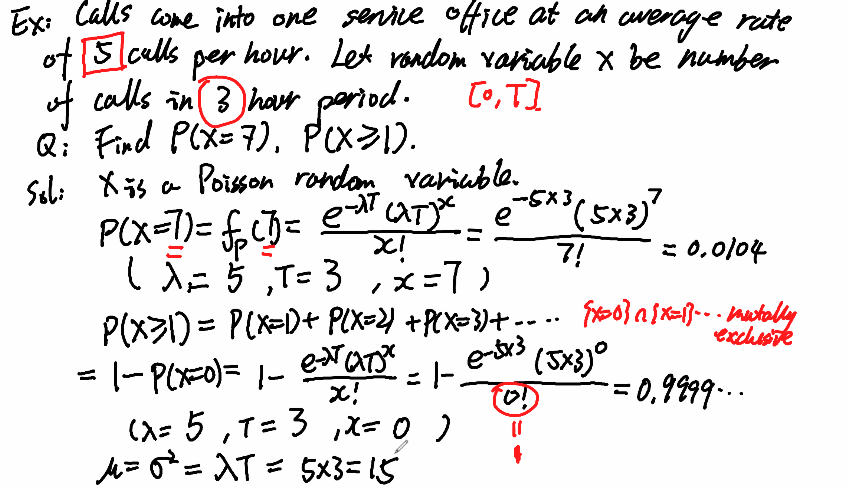 Ex: Calls come into one service office at an average rate
of 5 calls per hour. Let random variable X be number
of calls in 3 hour period. [0, T]
Q: Find P(X=7), P(X≥1).
Sol: X is a Poisson random variable.
P(X=7) = f_p(7) = e^{-λT}(λT)^x / x! = e^{-5×3}(5×3)^7 / 7! = 0.0104
( λ = 5 , T = 3 , x = 7 )
P(X≥1) = P(X=1) + P(X=2) + P(X=3) + ····· {X=0} ∩ {X=1} ··· mutally exclusive
= 1 - P(X=0) = 1 - e^{-λT}(λT)^x / x! = 1 - e^{-5×3}(5×3)^0 / 0! = 0.9999···
(λ = 5 , T = 3 , x = 0 ) = 1
μ = σ² = λT = 5×3 = 15